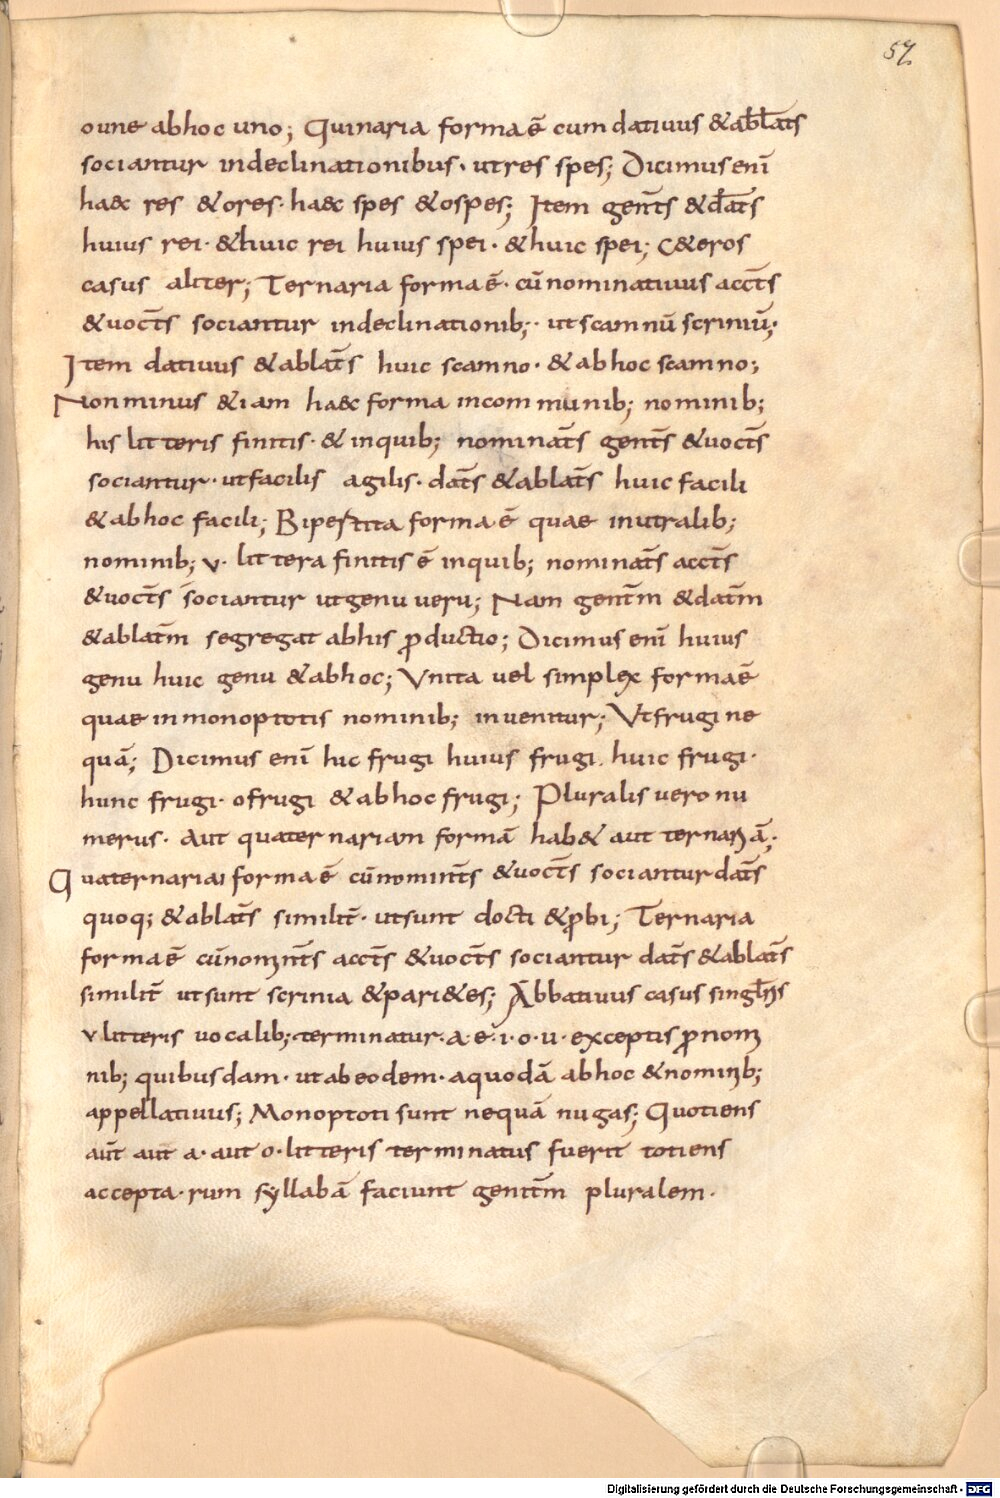 57
oune abhoc uno; Quinaria forma ē cum dativus & abl̄ats
sociantur indeclinationibus· ut res spes; Dicimus enī
haec res & ores· haec spes & ospes; Item gen̄ts & dāts
huius rei· & huic rei huius spei· & huic spei; C&eros
casus aliter; Ternaria forma ē· cū nominativus acc̄ts
& voc̄ts sociantur indeclinationib;· ut scamnū scriniū;·
Item dativus & ablāts huic scamno· & abhoc scamno;
Non minus & iam haec forma in communib; nominib;
his litteris finitis· & in quib; nomināts gen̄ts & voc̄ts
sociantur· ut facilis agilis· dāts & ablāts huic facili
& abhoc facili; Bipertita forma ē quae inutralib;
nominib; v· littera finitis ē in quib; nomināts acc̄ts
& voc̄ts sociantur ut genu veru; Nam gen̄tm & dātm
& ablātm segregat abhis ꝓductio; Dicimus enī huius
genu huic genu & abhoc; Unita vel simplex forma ē
quae in monoptotis nominib; invenitur; Ut frugi ne
quā; Dicimus enī hic frugi huius frugi. huic frugi·
hunc frugi· ofrugi & abhoc frugi; Pluralis vero nu
merus· aut quaternariam formā hab& aut ternariā;·
Quaternariai forma ē cū nomin̄ts & voc̄ts sociantur dāts
quoq; & ablāts similit̄· ut sunt docti & ꝓbi; Ternaria
forma ē cū nomin̄ts acc̄ts & voc̄ts sociantur dāts & ablāts
similit̄ ut sunt scrinia & pari&es; Abbativus casus singl̄ris
v litteris vocalib; terminatur· a· e· i· o· u· exceptis ꝓnomi
nib; quibusdam· ut abeodem· aquodā abhoc & nominib;
appellativus; Monoptoti sunt nequā nugas; Quotiens
aūt aut a· aut o· litteris terminatus fuerit totiens
accepta· rum syllabā faciunt genitm̄ pluralem·
Digitalisierung gefördert durch die Deutsche Forschungsgemeinschaft - DFG